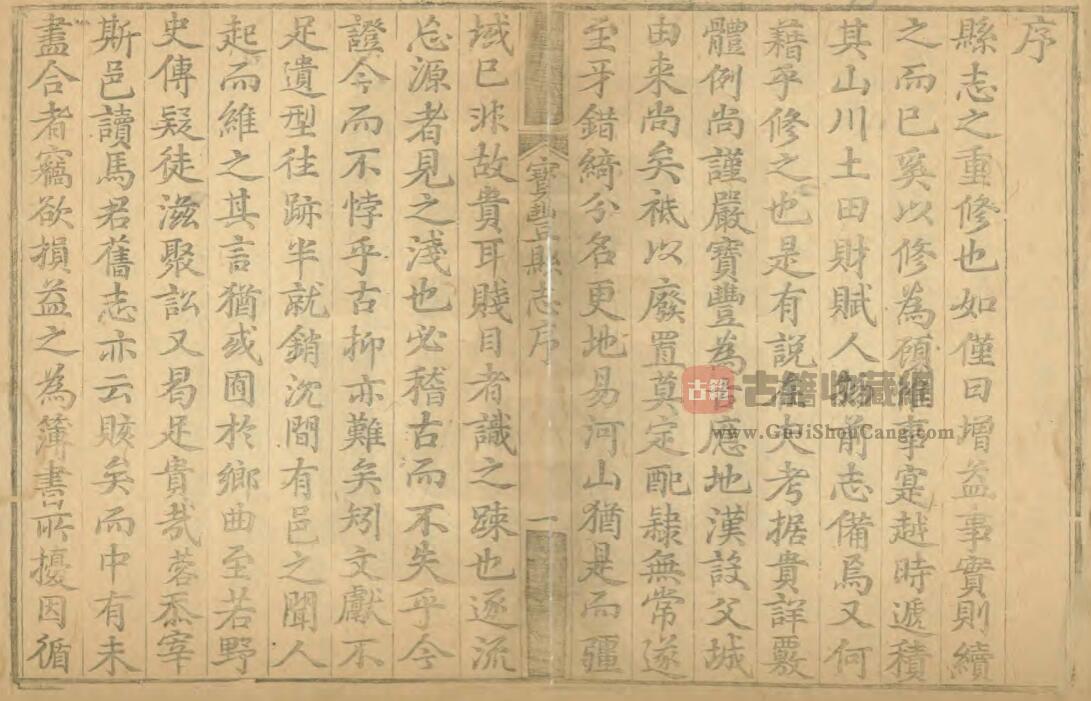 序
縣志之重修也如僅曰增益事實則續
之而已奚以修為顧事寔越時遞積
其山川土田財賦人物前志備焉又何
藉乎修之也是有說在夫考据貴詳覈
體例尚謹嚴寶豐為古應地漢設父城
由来尚矣祗以廢置奠定配隸無常遂
至牙錯綺分名更地易河山猶是而疆
寶豐縣志序
一
域已非故貴耳賤目者識之踈也逐流
忘源者見之淺也必稽古而不失乎今
證今而不悖乎古抑亦難矣矧文獻不
足遺型往跡半就銷沈間有邑之聞人
起而維之其言猶或囿於鄉曲至若野
史傳疑徒滋聚訟又曷足貴哉蓉忝宰
斯邑讀馬君舊志亦云賅矣而中有未
盡合者竊欲損益之為簿書所擾因循
古籍
古籍收藏
www.GuJiShouCang.com